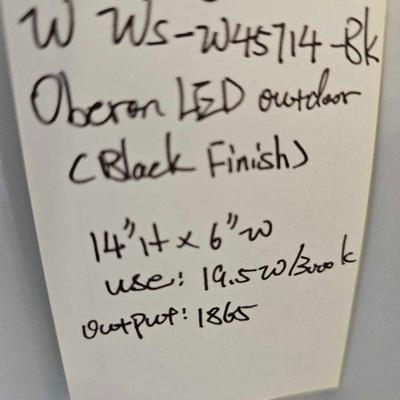 W WS-W45714-BK
Oberon LED outdoor
(Black Finish)
14"H x 6"W
use: 19.5W/3000k
output: 1865